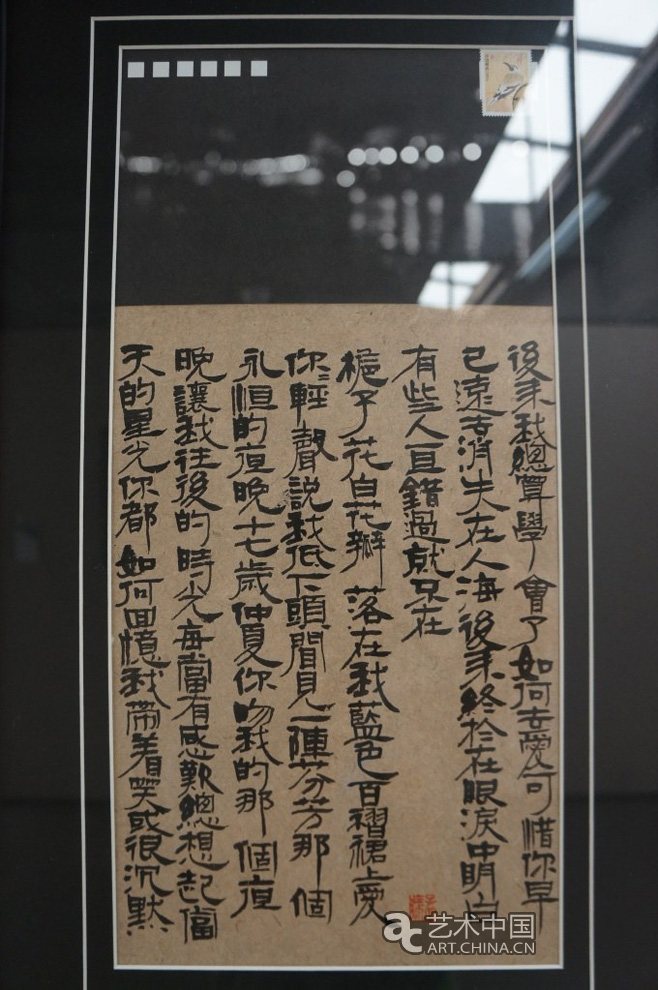 後来我總算學會了如何去愛可惜你早
已遠去消失在人海後来終於在眼淚中明白
有些人一旦錯過就不在
梔子花白花瓣落在我藍色百褶裙上愛
你〻輕聲說我低下頭聞見一陣芬芳那個
永恒的夜晚十七歲仲夏你吻我的那個夜
晚讓我往後的時光每當有感歎總想起當
天的星光你都如何回憶我帶着笑或很沉默
艺术中国
ART.CHINA.CN